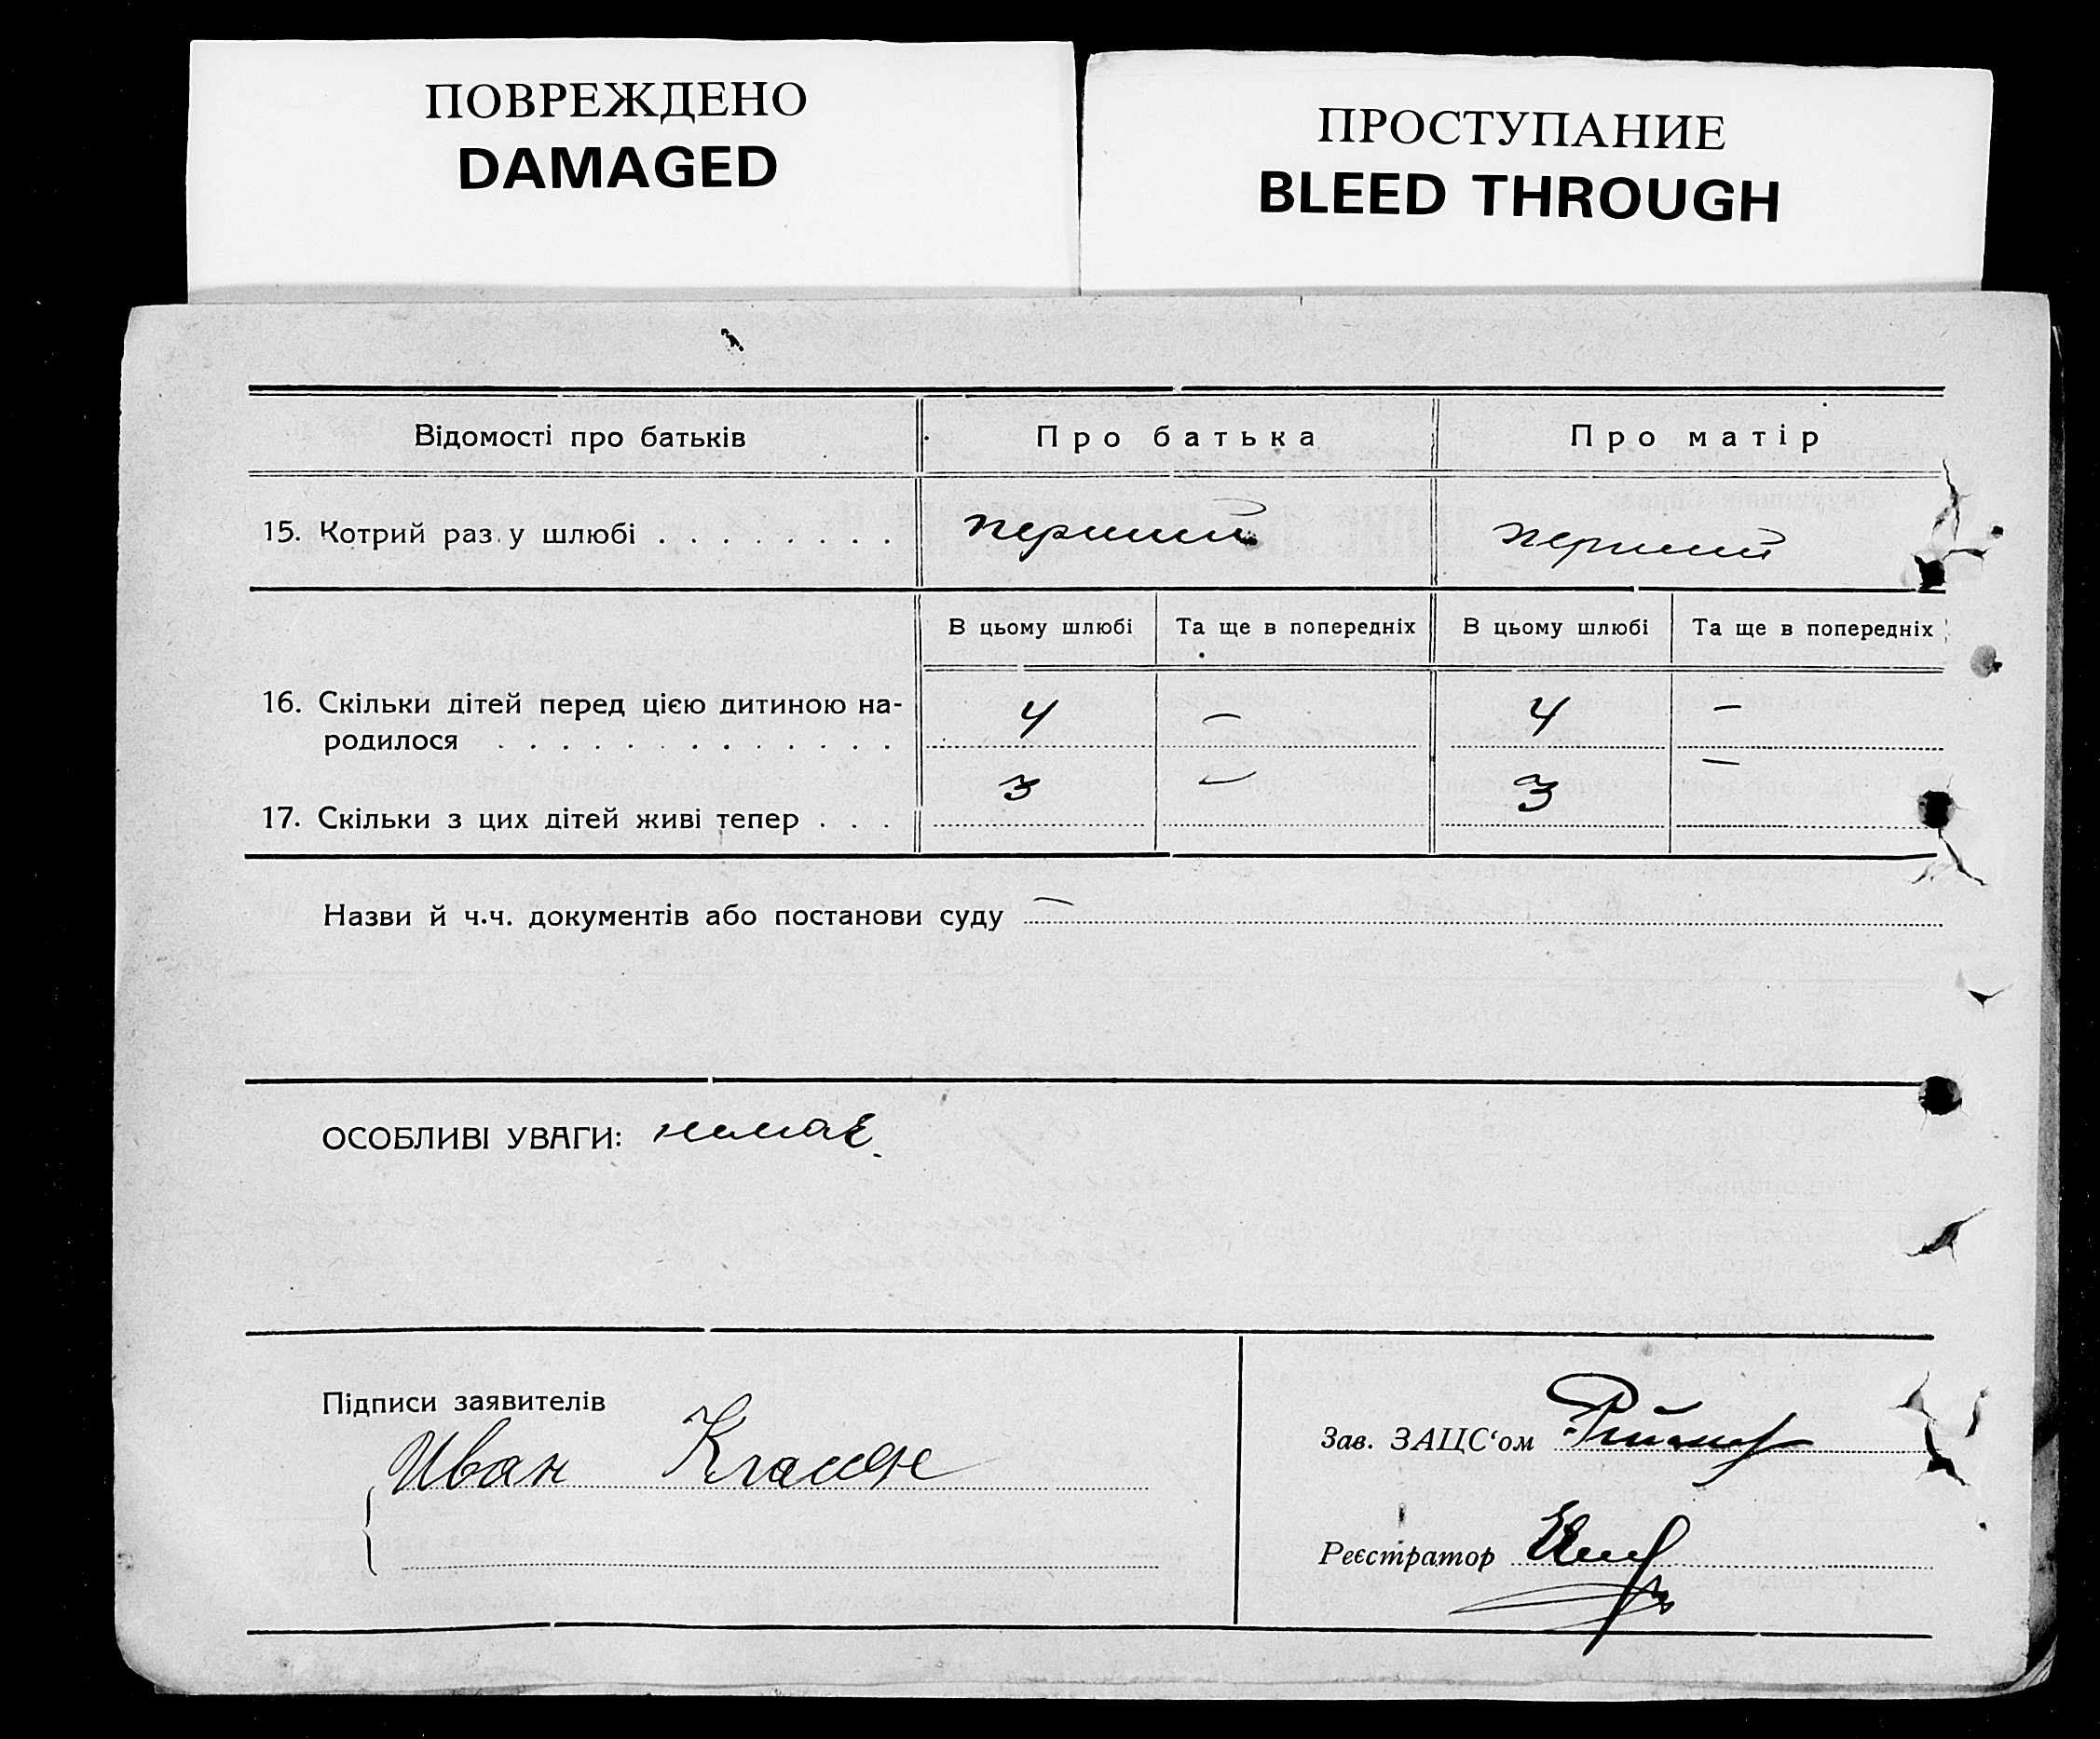 ПОВРЕЖДЕНО
DAMAGED
ПРОСТУПАНИЕ
BLEED THROUGH
Відомості про батьків
Про батька
Про матір
15. Котрий раз у шлюбі . . . . . . . .
перший
перший
В цьому шлюбі
Та ще в попередніх
В цьому шлюбі
Та ще в попередніх
16. Скільки дітей перед цією дитиною на-
родилося . . . . . . . . . . . . .
4
—
4
—
17. Скільки з цих дітей живі тепер . . .
3
—
3
—
Назви й ч.ч. документів або постанови суду —
ОСОБЛИВІ УВАГИ: немає
Підписи заявителів
Иван
Зав. ЗАЦС‘ом
Реєстратор